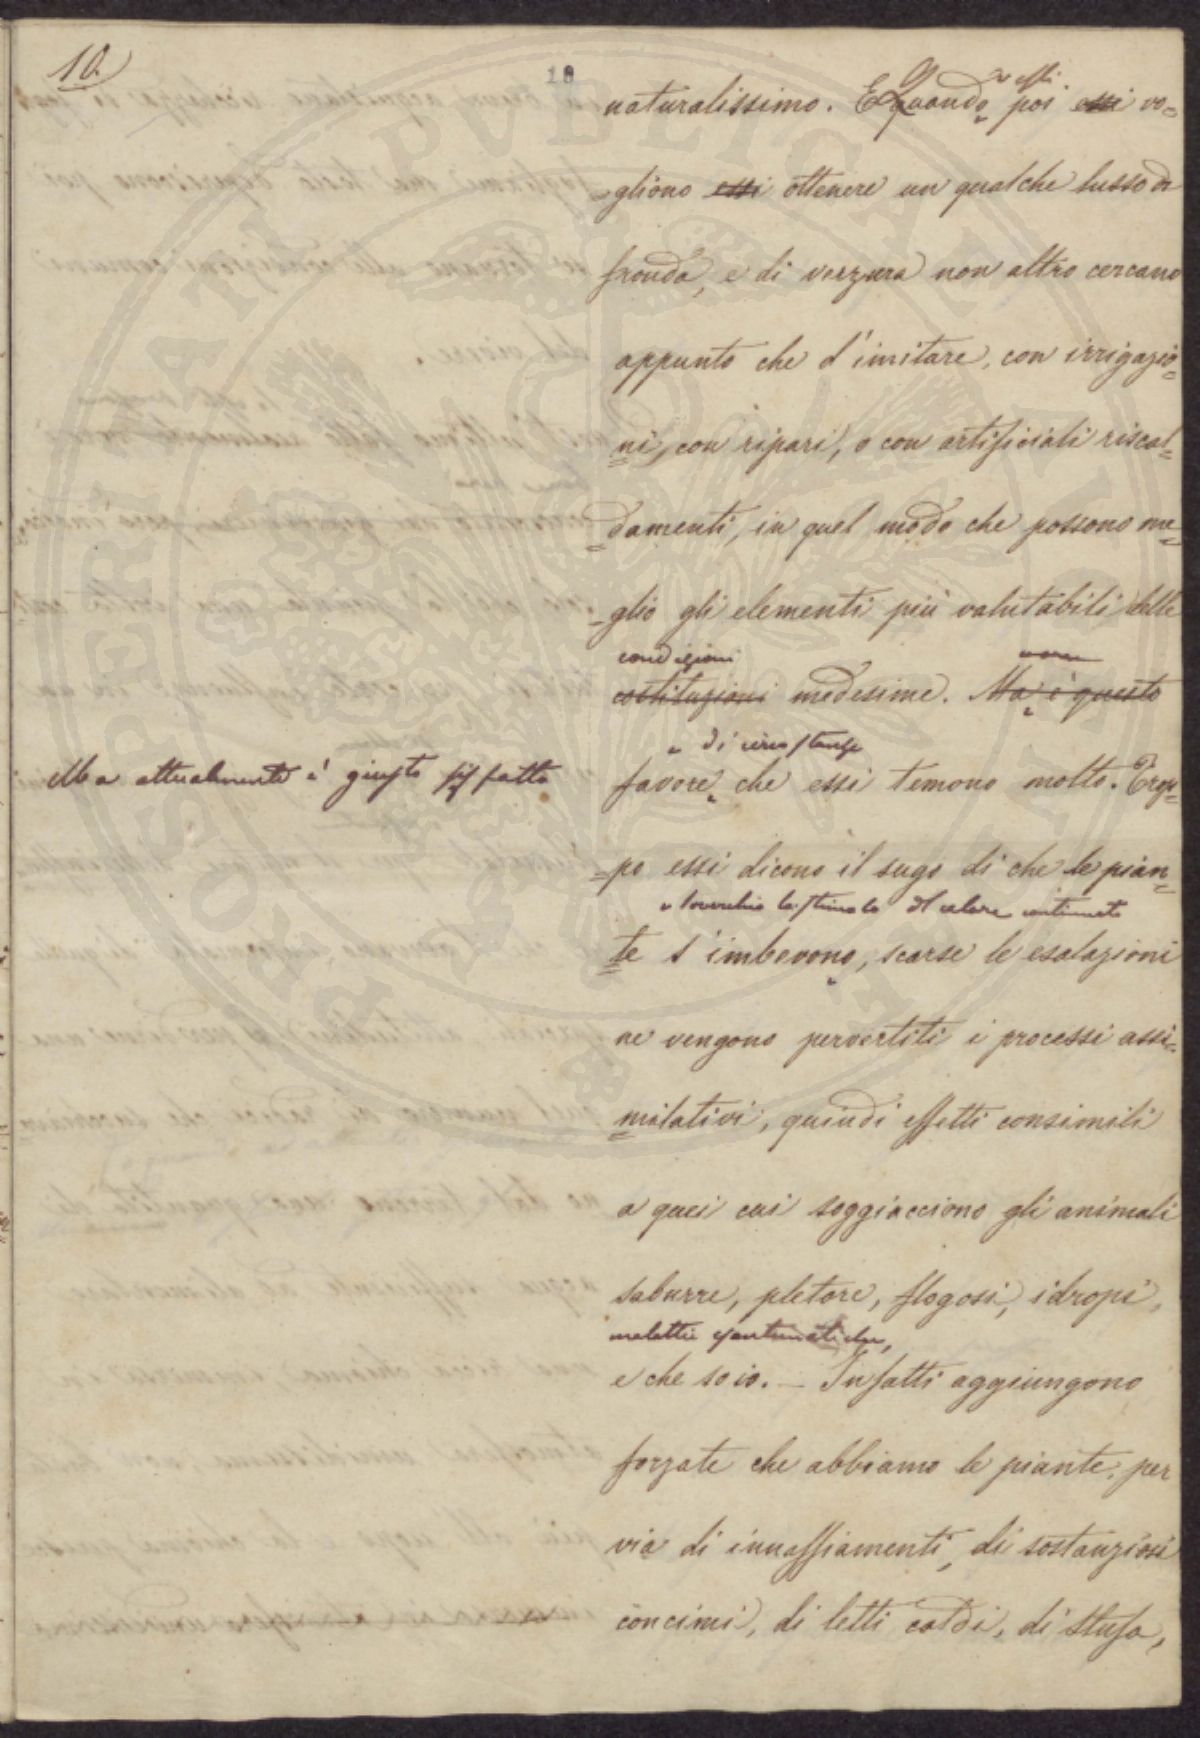 10.
18
naturalissimo. E Quando essi poi essi vo=
=gliono essi ottenere un qualche lusso di
fronda, e di verzura non altro cercano
appunto che d'imitare, con irrigazio=
=ni, con ripari, o con artificiali riscal=
=damenti, in quel modo che possono me=
=glio gli elementi più valutabili delle
condizioni
costituzioni medesime. Ma è questo
di circostanze
Ma attualmente è giusto siffatto
favore che essi temono molto. Trop=
=po essi dicono il sugo di che le pian=
soverchio lo stimolo del calore continuato
=te s'imbevono, scarse le esalazioni
ne vengono pervertiti i processi assi=
=milativi, quindi effetti consimili
a quei cui soggiacciono gli animali
saburre, pletore, flogosi, idropi,
malattie esantematiche,
e che so io. — Infatti aggiungono
forzate che abbiamo le piante, per
via di innaffiamenti, di sostanziosi
concimi, di letti caldi, di stufa,
PROSPERITATI PUBLICAE AUGENDAE